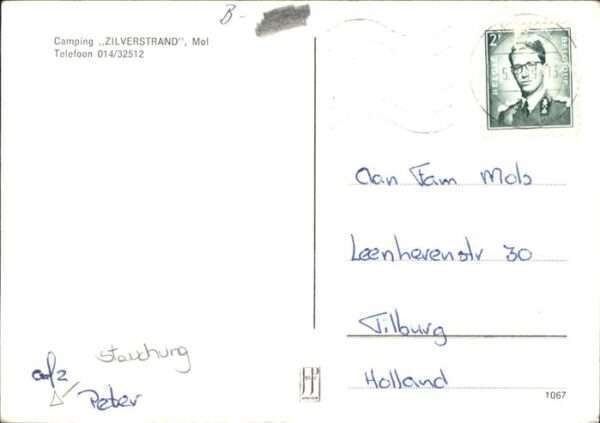 B-
Camping „ZILVERSTRAND”, Mol
Telefoon 014/32512
2F
BELGIE BELGIQUE
Aan Fam Mols
Leenherenstr 30
Tilburg
Holland
afz
Peter
1067